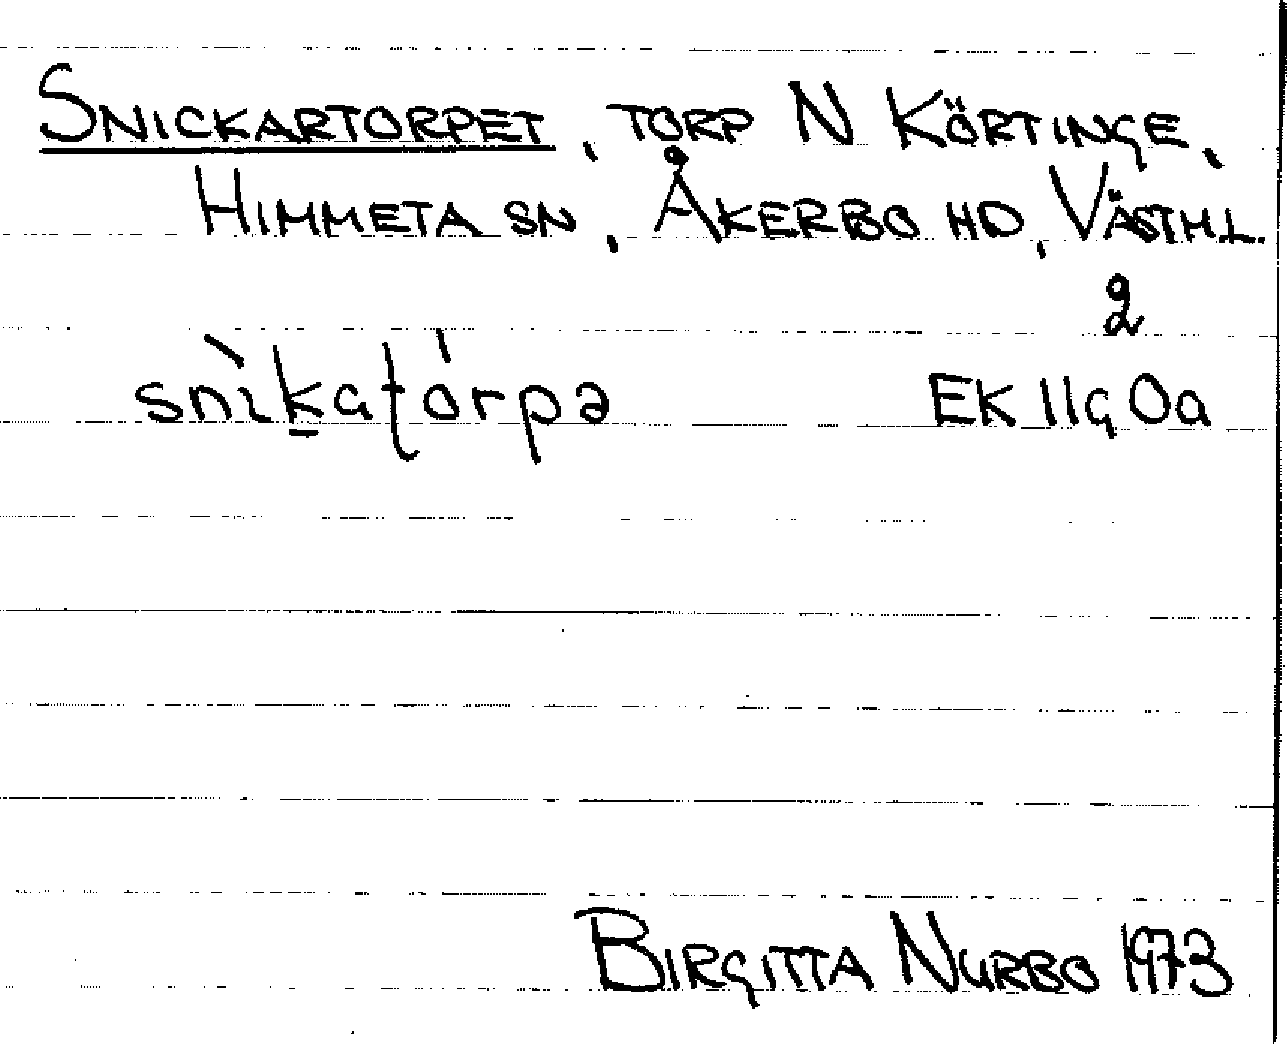 SNICKARTORPET, TORP N KÖRTINGE,
HIMMETA SN, ÅKERBO HD, VÄSTM.L.
2
snìk̠aʈórpə EK 11g 0a
BIRGITTA NURBO 1973